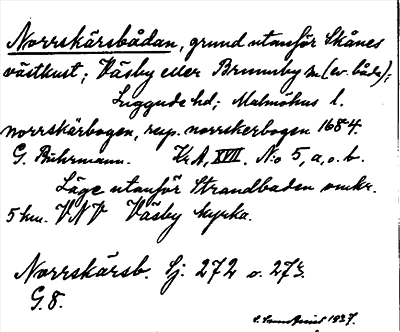 Norrskärsbådan, grund utanför Skånes
västkust; Väsby eller Brunnby sn (ev. båda);
Luggude hd; Malmöhus l.
norrskärbogen, resp. norrskerbogen 1684.
G. Buhrmann. Kr.A, XVII. N:o 5, a, o. b.
Läge utanför Strandbaden omkr.
5 km. VNV Väsby kyrka.
Norrskärsb. Sj. 272 o. 273.
G. 8.
1937.